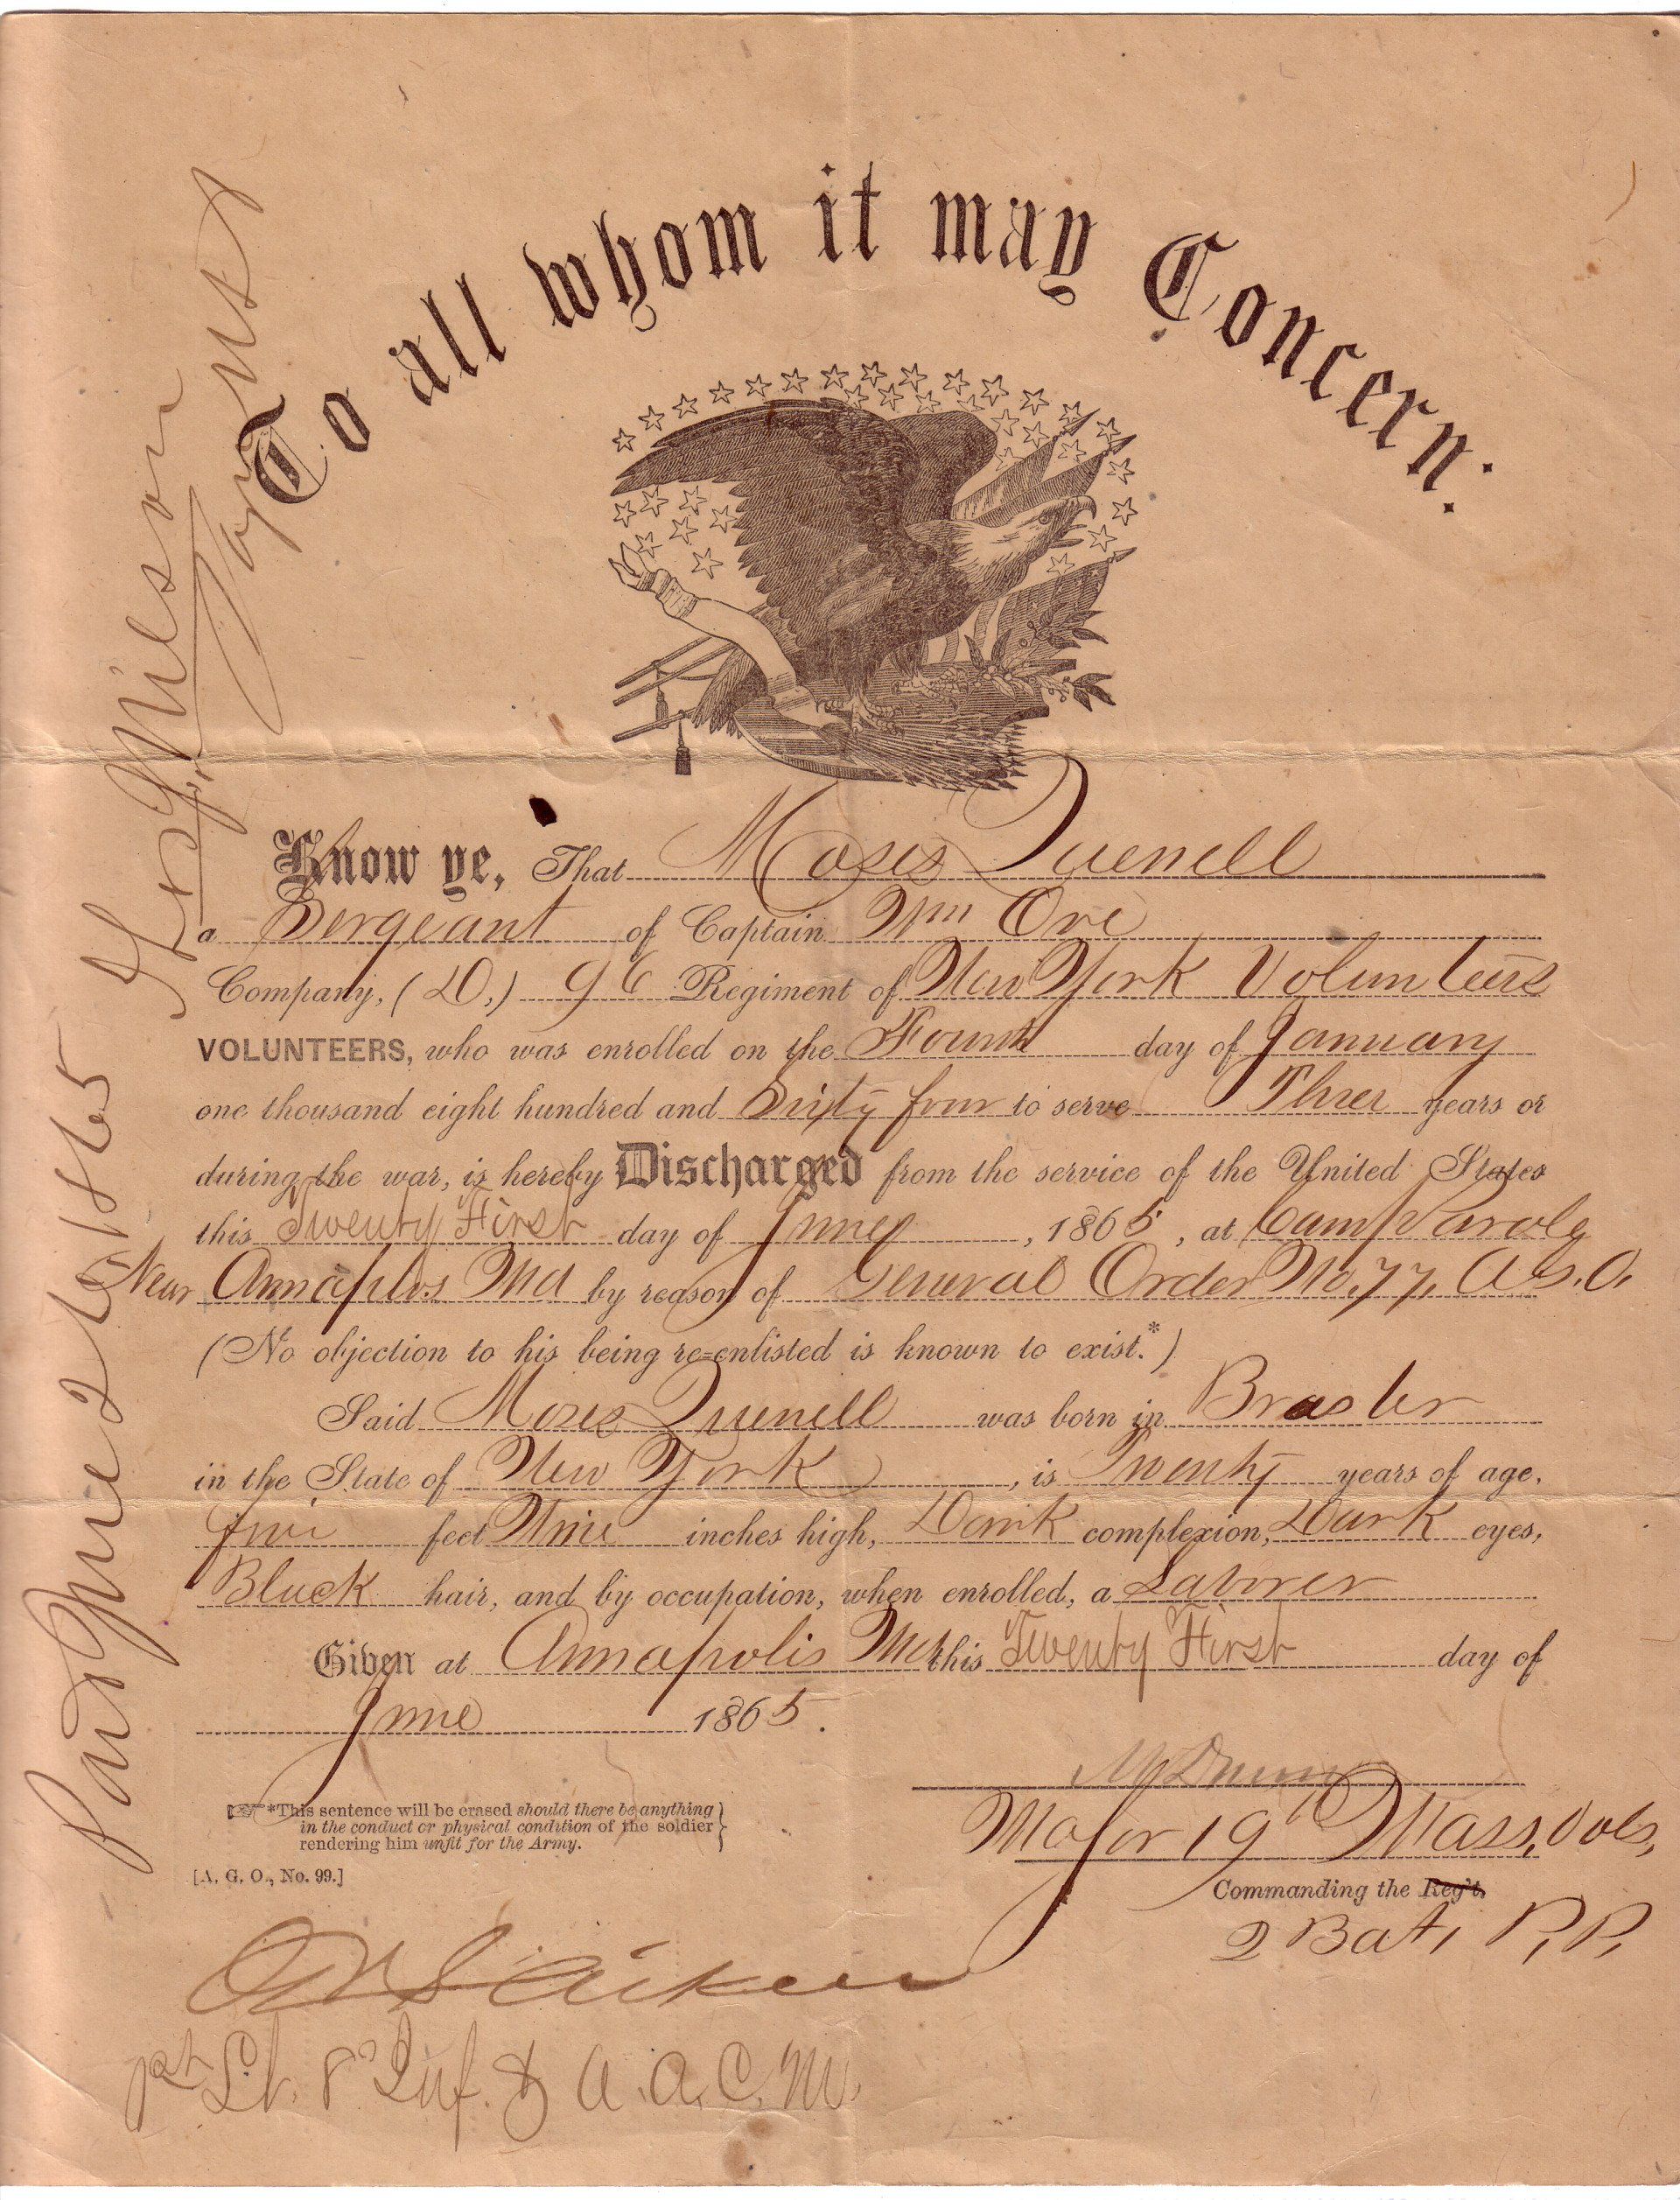 To all whom it may Concern:
Know ye, That Moses Quenell
a Sergeant of Captain Wm Ore
Company, (D,) 96 Regiment of New York Volunteers
VOLUNTEERS, who was enrolled on the Fourth day of January
one thousand eight hundred and Sixty four to serve Three years or
during the war, is hereby Discharged from the service of the United States
this Twenty First day of June, 1865, at Camp Parole
Near Annapolis Md by reason of General Order No. 77, A.G.O.
(No objection to his being re-enlisted is known to exist.*)
Said Moses Quenell was born in
in the State of New York, is Twenty years of age,
five feet Nine inches high, Dark complexion, Dark eyes,
Black hair, and by occupation, when enrolled, a Laborer
Given at Annapolis Md this Twenty First day of
June 1865.
*This sentence will be erased should there be anything
in the conduct or physical condition of the soldier
rendering him unfit for the Army.
[A. G. O., No. 99.]
Major 19th Mass. Vols,
Commanding the Reg't.
2 Bat, P, P,
1st Lt. 8" Inf. & A. A. C. M.
Paid June 26, 1865
Wilson
Paymast